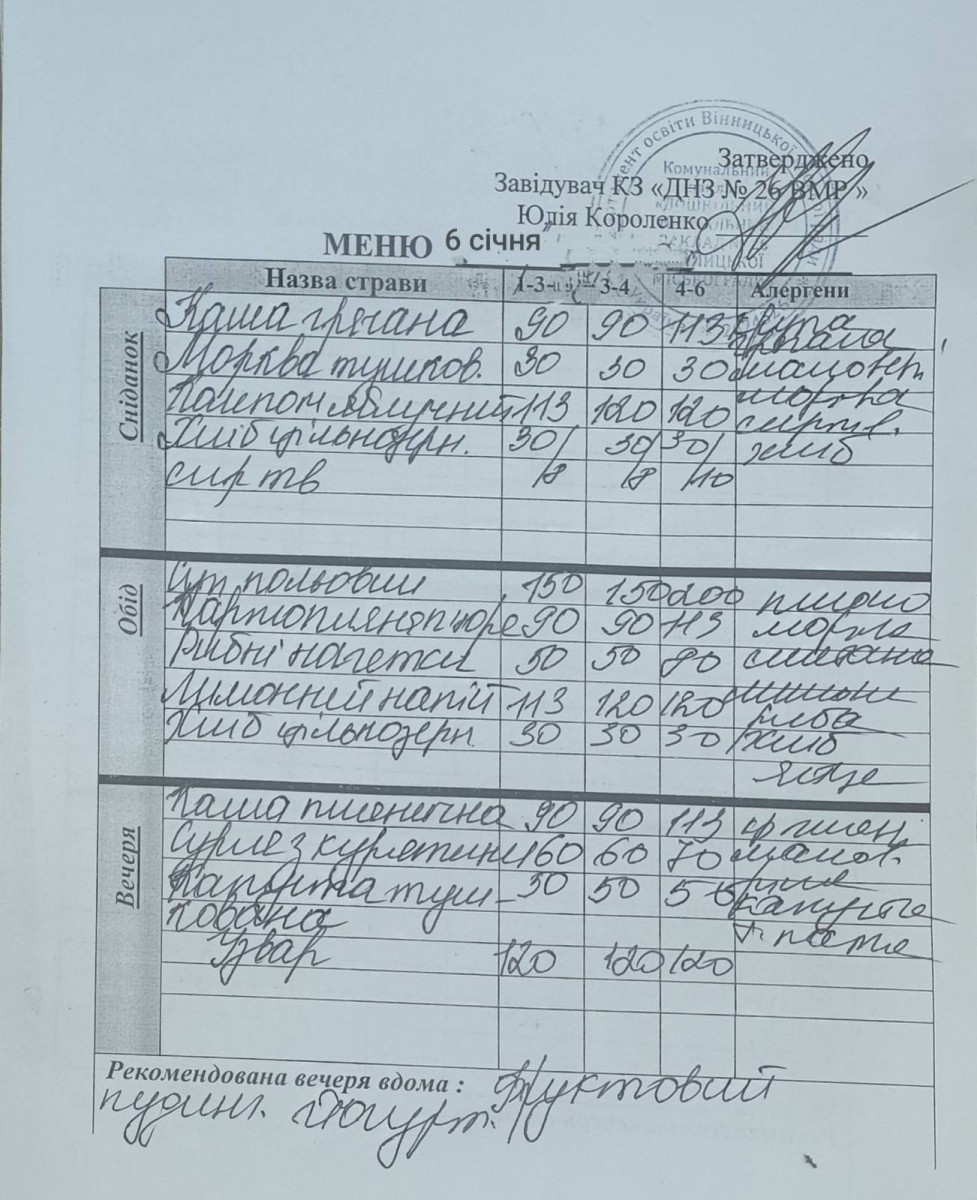 Затверджено
Завідувач КЗ «ДНЗ № 26 ВМР»
Юлія Короленко
МЕНЮ 6 січня
Назва страви 1-3 3-4 4-6 Алергени
Сніданок
Каша гречана 90 90 113 крупа
гречана
Морква тушков. 30 30 30
морква
Компот яблучний 113 120 120
Хліб цільнозерн. 30/ 30/ 30/ хліб
сир тв 8 8 /10
Обід
Суп польовий 150 150 200 пшоно
Картопляне пюре 90 90 113 морква
Рибні нагетси 50 50 80 сметана
Лимонний напій 113 120 120 риба
Хліб цільнозерн. 30 30 30 хліб
яйце
Вечеря
Каша пшенична 90 90 113
Суфле з курятини 60 60 70
Капуста туш- 50 50 50 капуста
кована
Узвар 120 120 120
Рекомендована вечеря вдома : Фруктовий
пудинг. Йогурт.